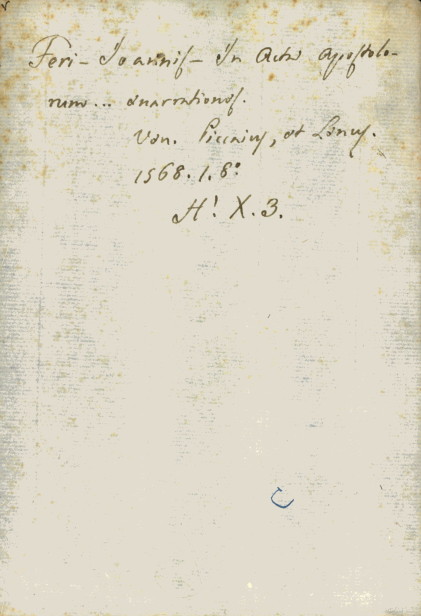 Feri - Joannis - In Acta Apostolo-
rum... enarrationes.
Ven. Piccaius, et Leucus.
1568. 1. 8º
H! X. 3.